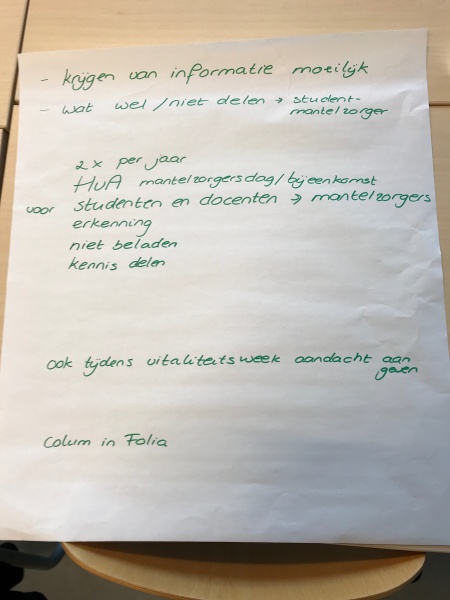 - krijgen van informatie moeilijk
- wat wel / niet delen → student-
mantelzorger
2 x per jaar
HvA mantelzorgersdag / bijeenkomst
voor studenten en docenten → mantelzorgers
erkenning
niet beladen
kennis delen
ook tijdens vitaliteitsweek aandacht aan
geven
Colum in Folia